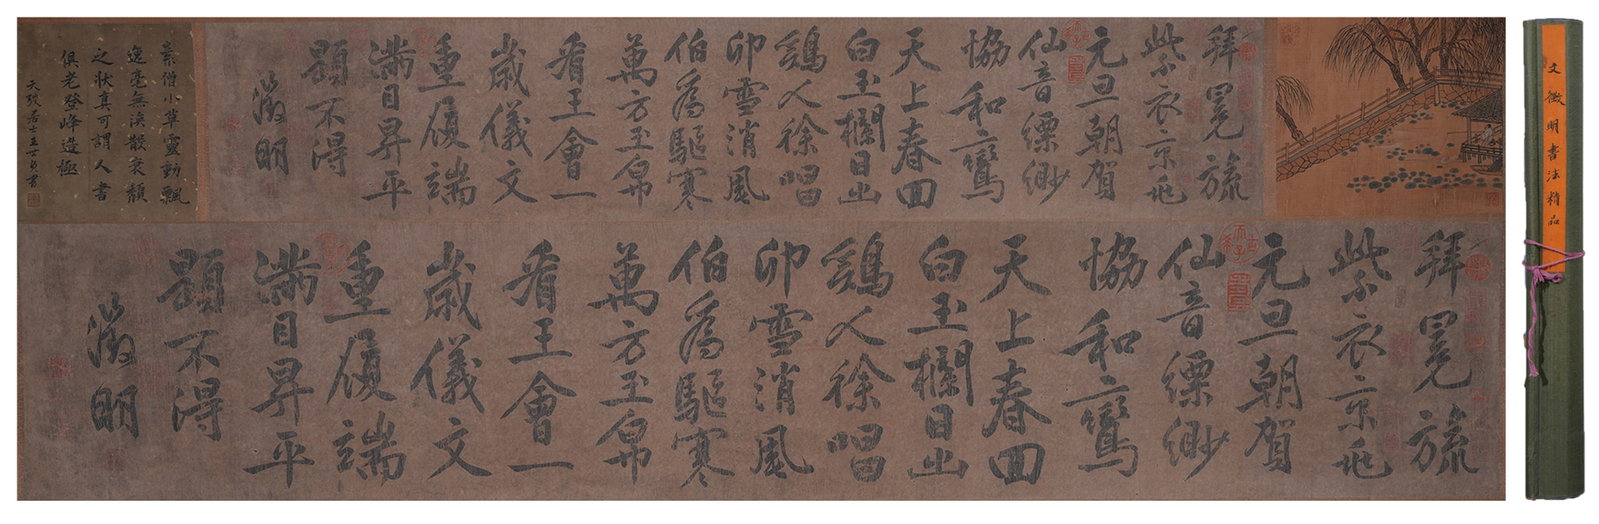 拜冕旒
紫衣京
元旦朝賀
仙音縹緲
協和鸞
天上春回
白玉欄日出
鷄人徐唱
卯雪消風
伯為驅寒
萬方玉帛
看王會一
歲儀文
重履端
滿目昇平
題不得
徵明
素僧小草靈動飄
逸毫無渙散衰頹
之狀真可謂人書
俱老登峰造極
天弢居士王世貞書
拜冕旒
紫衣京
元旦朝賀
仙音縹緲
協和鸞
天上春回
白玉欄日出
鷄人徐唱
卯雪消風
伯為驅寒
萬方玉帛
看王會一
歲儀文
重履端
滿目昇平
題不得
徵明
文徵明書法精品